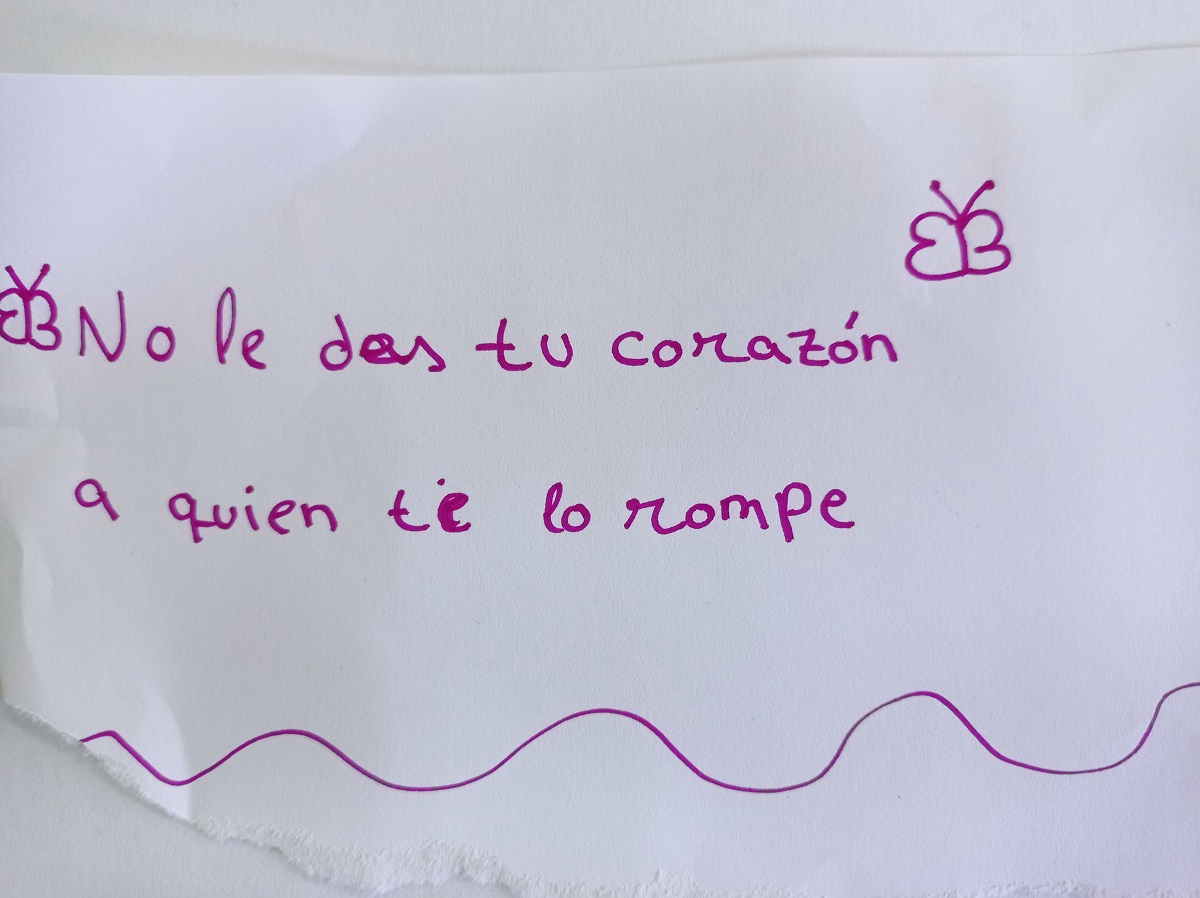 No le des tu corazón
a quien te lo rompe